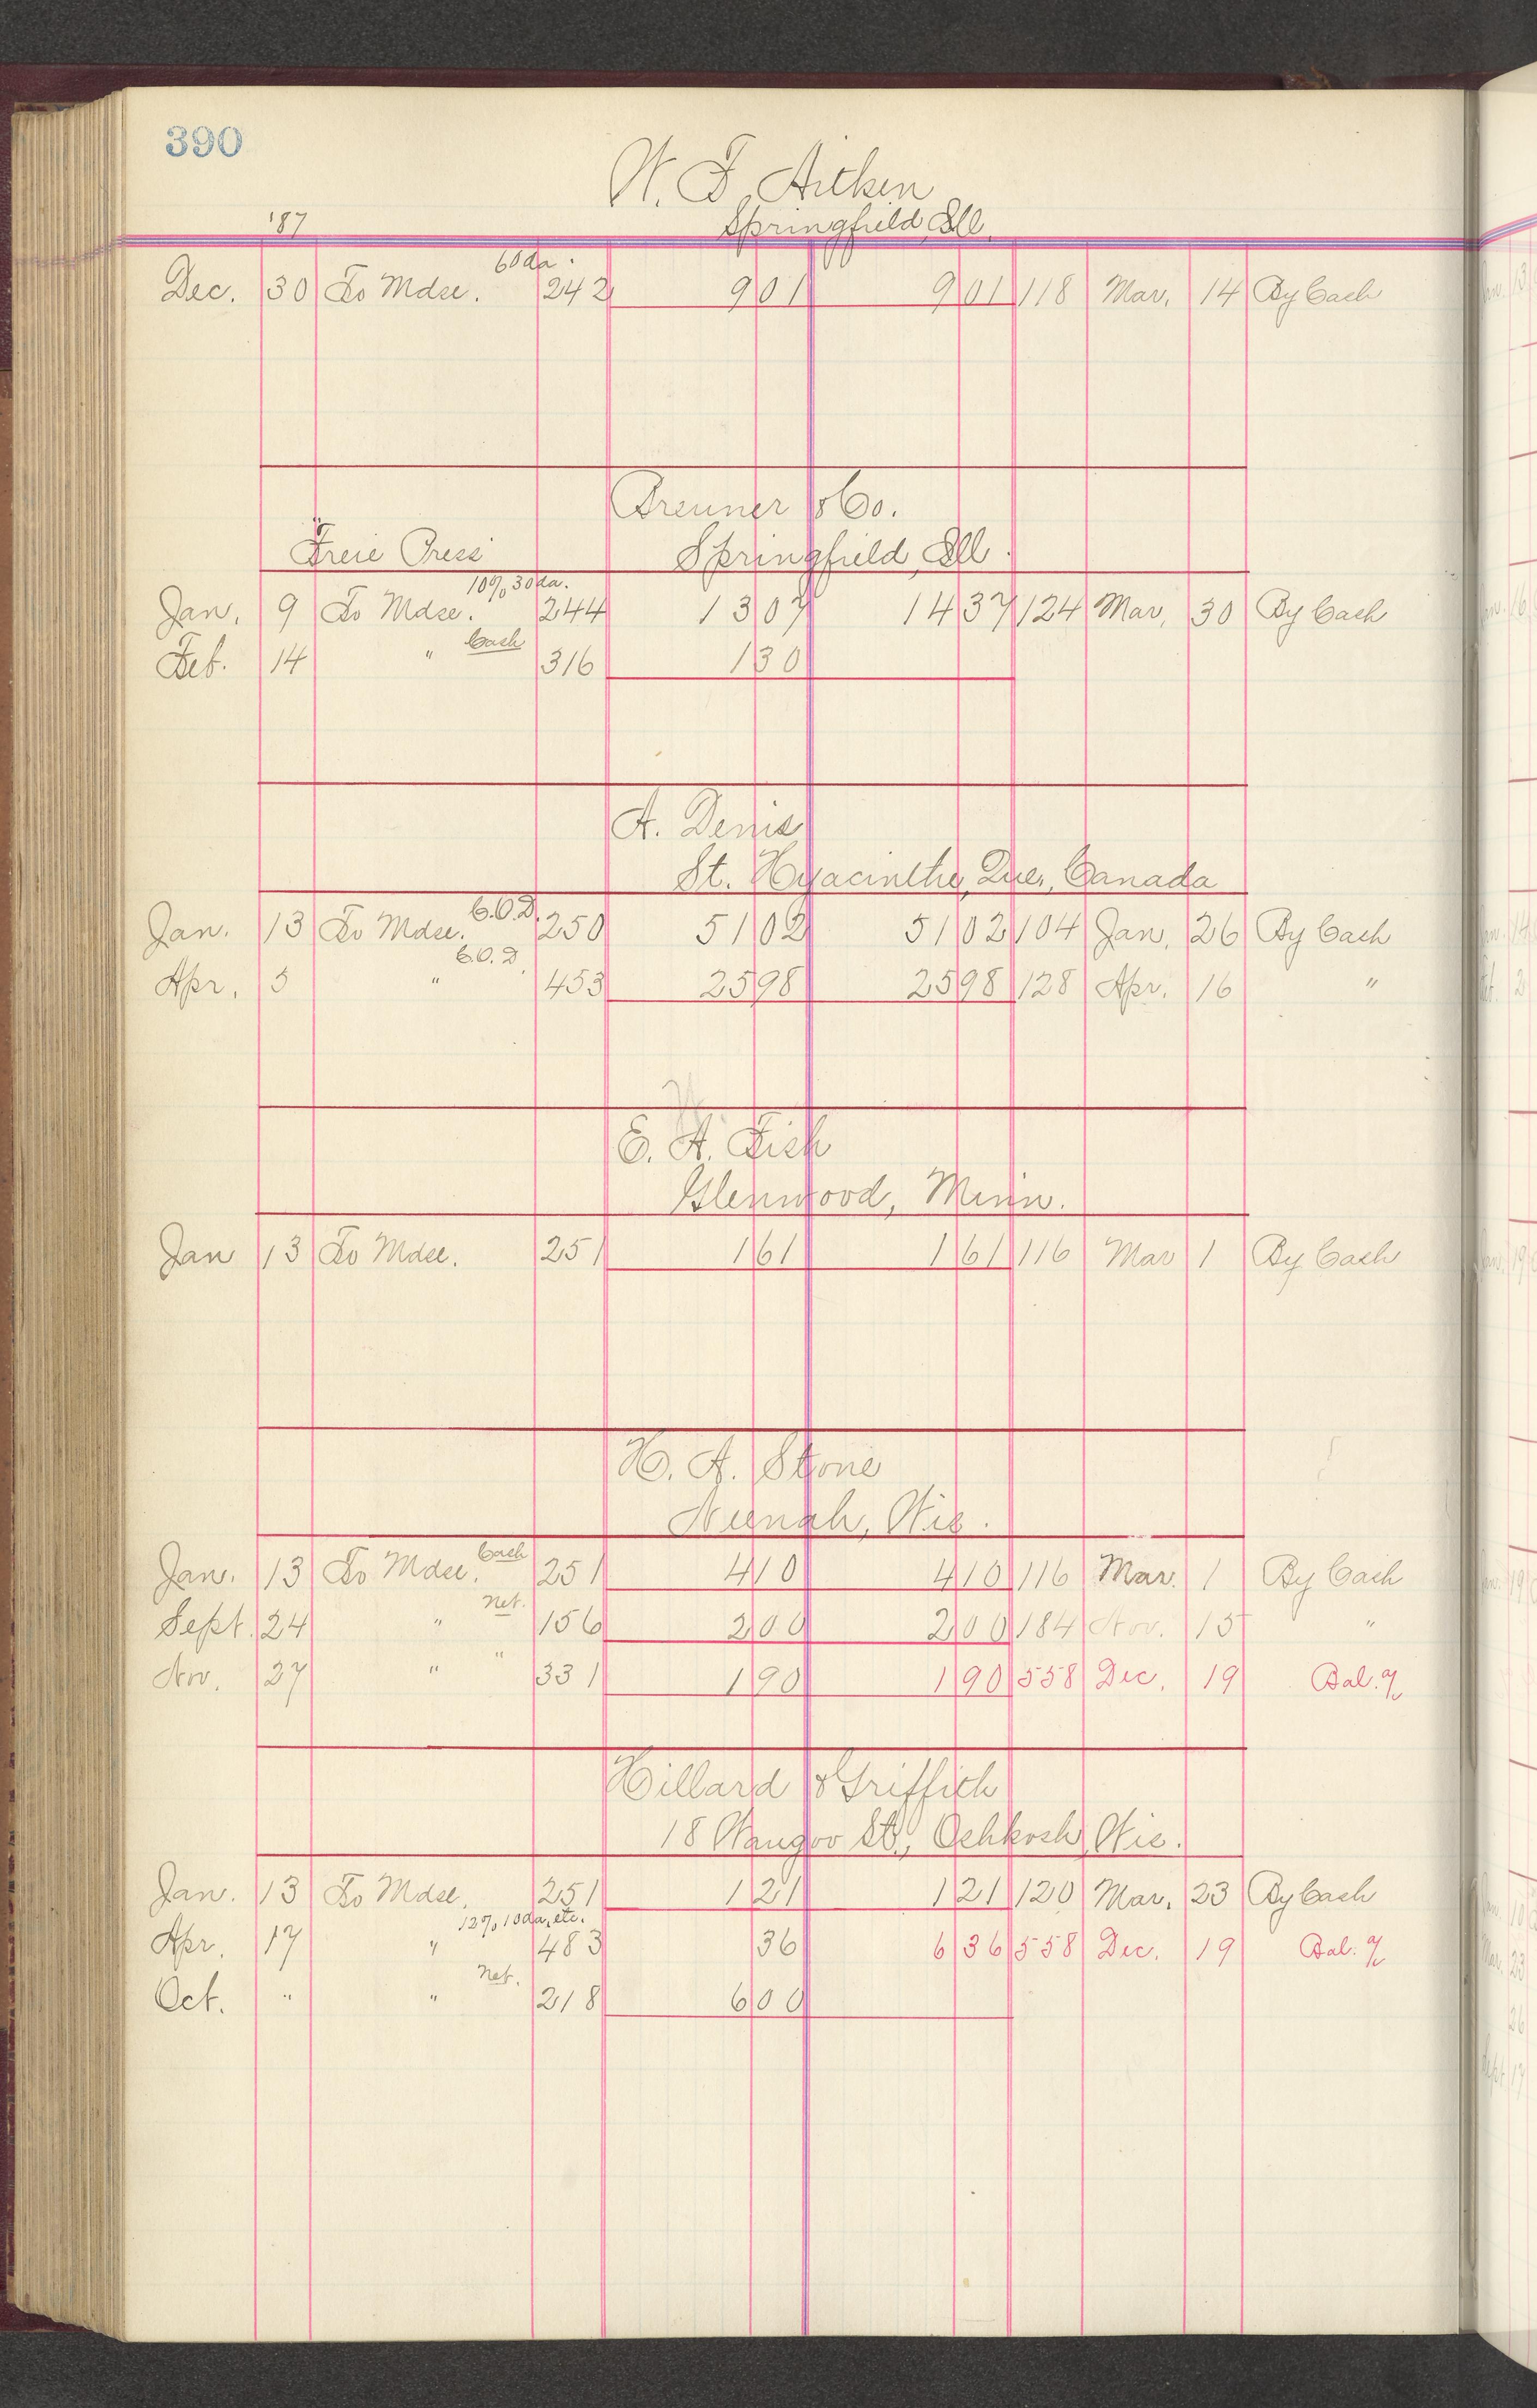 390
W. F. Aitken
'87 Springfield, Ill.
60 da.
Dec. 30 To Mdse. 242 9 01 9 01 118 Mar. 14 By Cash
Breuner & Co.
"Freie Press" Springfield, Ill.
10% 30 da.
Jan. 9 To Mdse. 244 13 07 14 37 124 Mar. 30 By Cash
Cash
Feb. 14 " 316 1 30
A. Denis
St. Hyacinthe, Que., Canada
C.O.D.
Jan. 13 To Mdse. 250 51 02 51 02 104 Jan. 26 By Cash
C.O.D.
Apr. 5 " 453 25 98 25 98 128 Apr. 16 "
E. A. Fish
Glenwood, Minn.
Jan 13 To Mdse. 251 1 61 1 61 116 Mar 1 By Cash
H. A. Stone
Neenah, Wis.
Cash
Jan. 13 To Mdse. 251 4 10 4 10 116 Mar. 1 By Cash
Net.
Sept. 24 " 156 2 00 2 00 184 Nov. 15 "
Nov. 27 " " 331 1 90 1 90 558 Dec. 19 Bal. %
Hillard & Griffith
18 Waugoo St., Oshkosh, Wis.
Jan. 13 To Mdse. 251 1 21 1 21 120 Mar. 23 By Cash
12% 10 da, etc.
Apr. 17 " 483 36 6 36 558 Dec. 19 Bal. %
Net.
Oct. " " 218 6 00